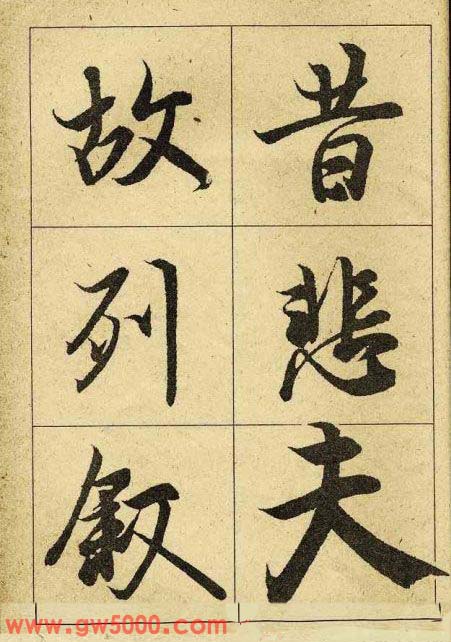 昔悲夫
故列叙
www.gw5000.com